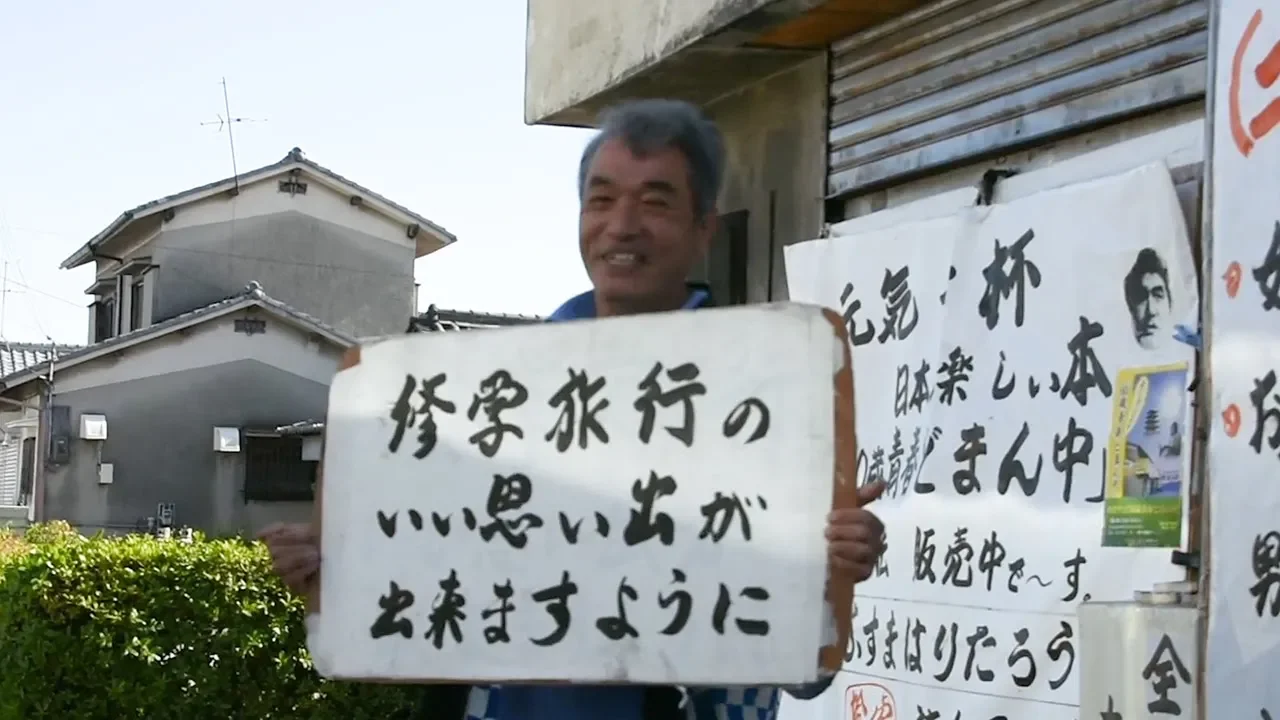 修学旅行の
いい思い出が
出来ますように
元気 杯
日本 楽しい本
青春どまん中」
販売中で〜す。
ふすまはりたろう
全
男